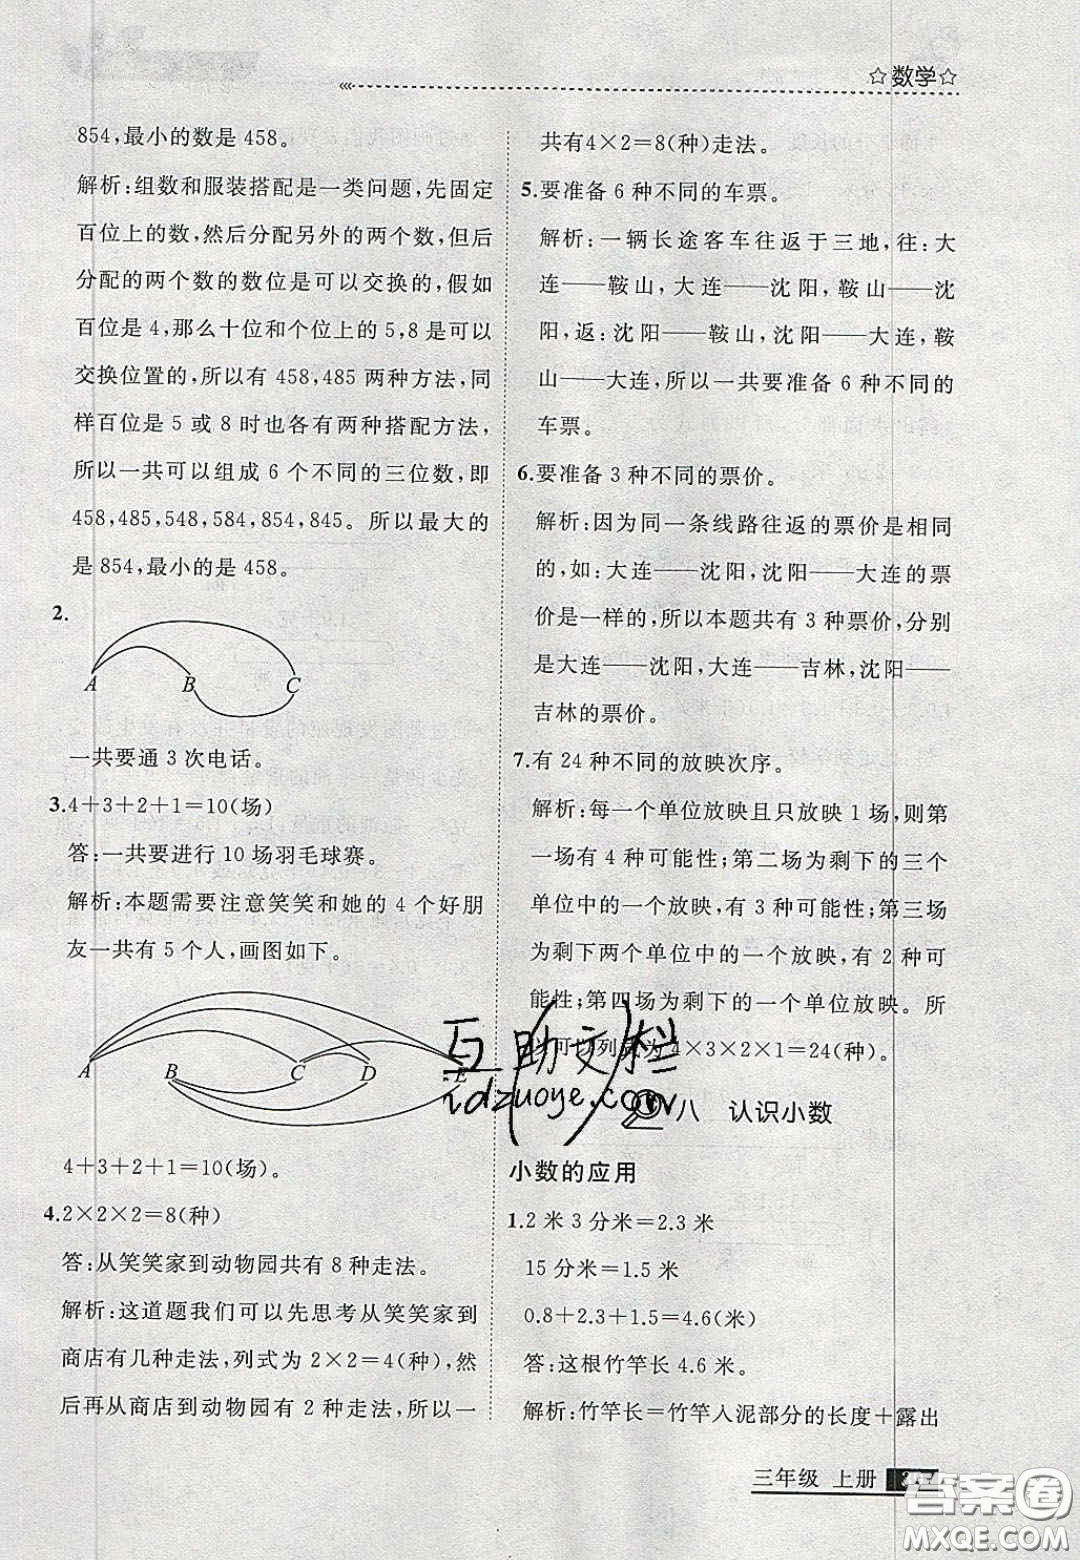 ☆数学☆
854,最小的数是 458。
解析:组数和服装搭配是一类问题,先固定
百位上的数,然后分配另外的两个数,但后
分配的两个数的数位是可以交换的,假如
百位是 4,那么十位和个位上的 5,8 是可以
交换位置的,所以有 458,485 两种方法,同
样百位是 5 或 8 时也各有两种搭配方法,
所以一共可以组成 6 个不同的三位数,即
458,485,548,584,854,845。所以最大的
是 854,最小的是 458。
2.
A B C
一共要通 3 次电话。
3.4+3+2+1=10(场)
答:一共要进行 10 场羽毛球赛。
解析:本题需要注意笑笑和她的 4 个好朋
友一共有 5 个人,画图如下。
A B C D E
4+3+2+1=10(场)。
4.2×2×2=8(种)
答:从笑笑家到动物园共有 8 种走法。
解析:这道题我们可以先思考从笑笑家到
商店有几种走法,列式为 2×2=4(种),然
后再从商店到动物园有 2 种走法,所以一
共有4×2=8(种)走法。
5.要准备 6 种不同的车票。
解析:一辆长途客车往返于三地,往:大
连——鞍山,大连——沈阳,鞍山——沈
阳,返:沈阳——鞍山,沈阳——大连,鞍
山——大连,所以一共要准备 6 种不同的
车票。
6.要准备 3 种不同的票价。
解析:因为同一条线路往返的票价是相同
的,如:大连——沈阳,沈阳——大连的票
价是一样的,所以本题共有 3 种票价,分别
是大连——沈阳,大连——吉林,沈阳——
吉林的票价。
7.有 24 种不同的放映次序。
解析:每一个单位放映且只放映 1 场,则第
一场有 4 种可能性;第二场为剩下的三个
单位中的一个放映,有 3 种可能性;第三场
为剩下两个单位中的一个放映,有 2 种可
能性;第四场为剩下的一个单位放映。所
以可以列式为 4×3×2×1=24(种)。
互助文档
idzuoye.com
八 认识小数
小数的应用
1.2 米 3 分米=2.3 米
15 分米=1.5 米
0.8+2.3+1.5=4.6(米)
答:这根竹竿长 4.6 米。
解析:竹竿长=竹竿入泥部分的长度+露出
三年级 上册
答案圈
MXQE.COM